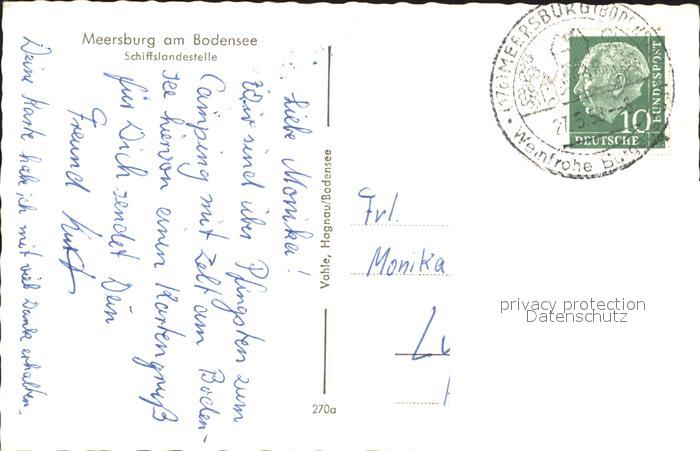 Meersburg am Bodensee
Schiffslandestelle
Liebe Monika!
Wir sind über Pfingsten zum
Camping mit Zelt am Boden-
see hiervon einen Kartengruß
für Dich sendet Dein
Freund Kurt
Deine Karte habe ich mit viel Dank erhalten.
Vahle, Hagnau/Bodensee
270a
MEERSBURG (BODENSEE)
27.5.5
Weinfrohe Burg
10
DEUTSCHE
BUNDESPOST
Frl.
Monika
Lu
privacy protection
Datenschutz